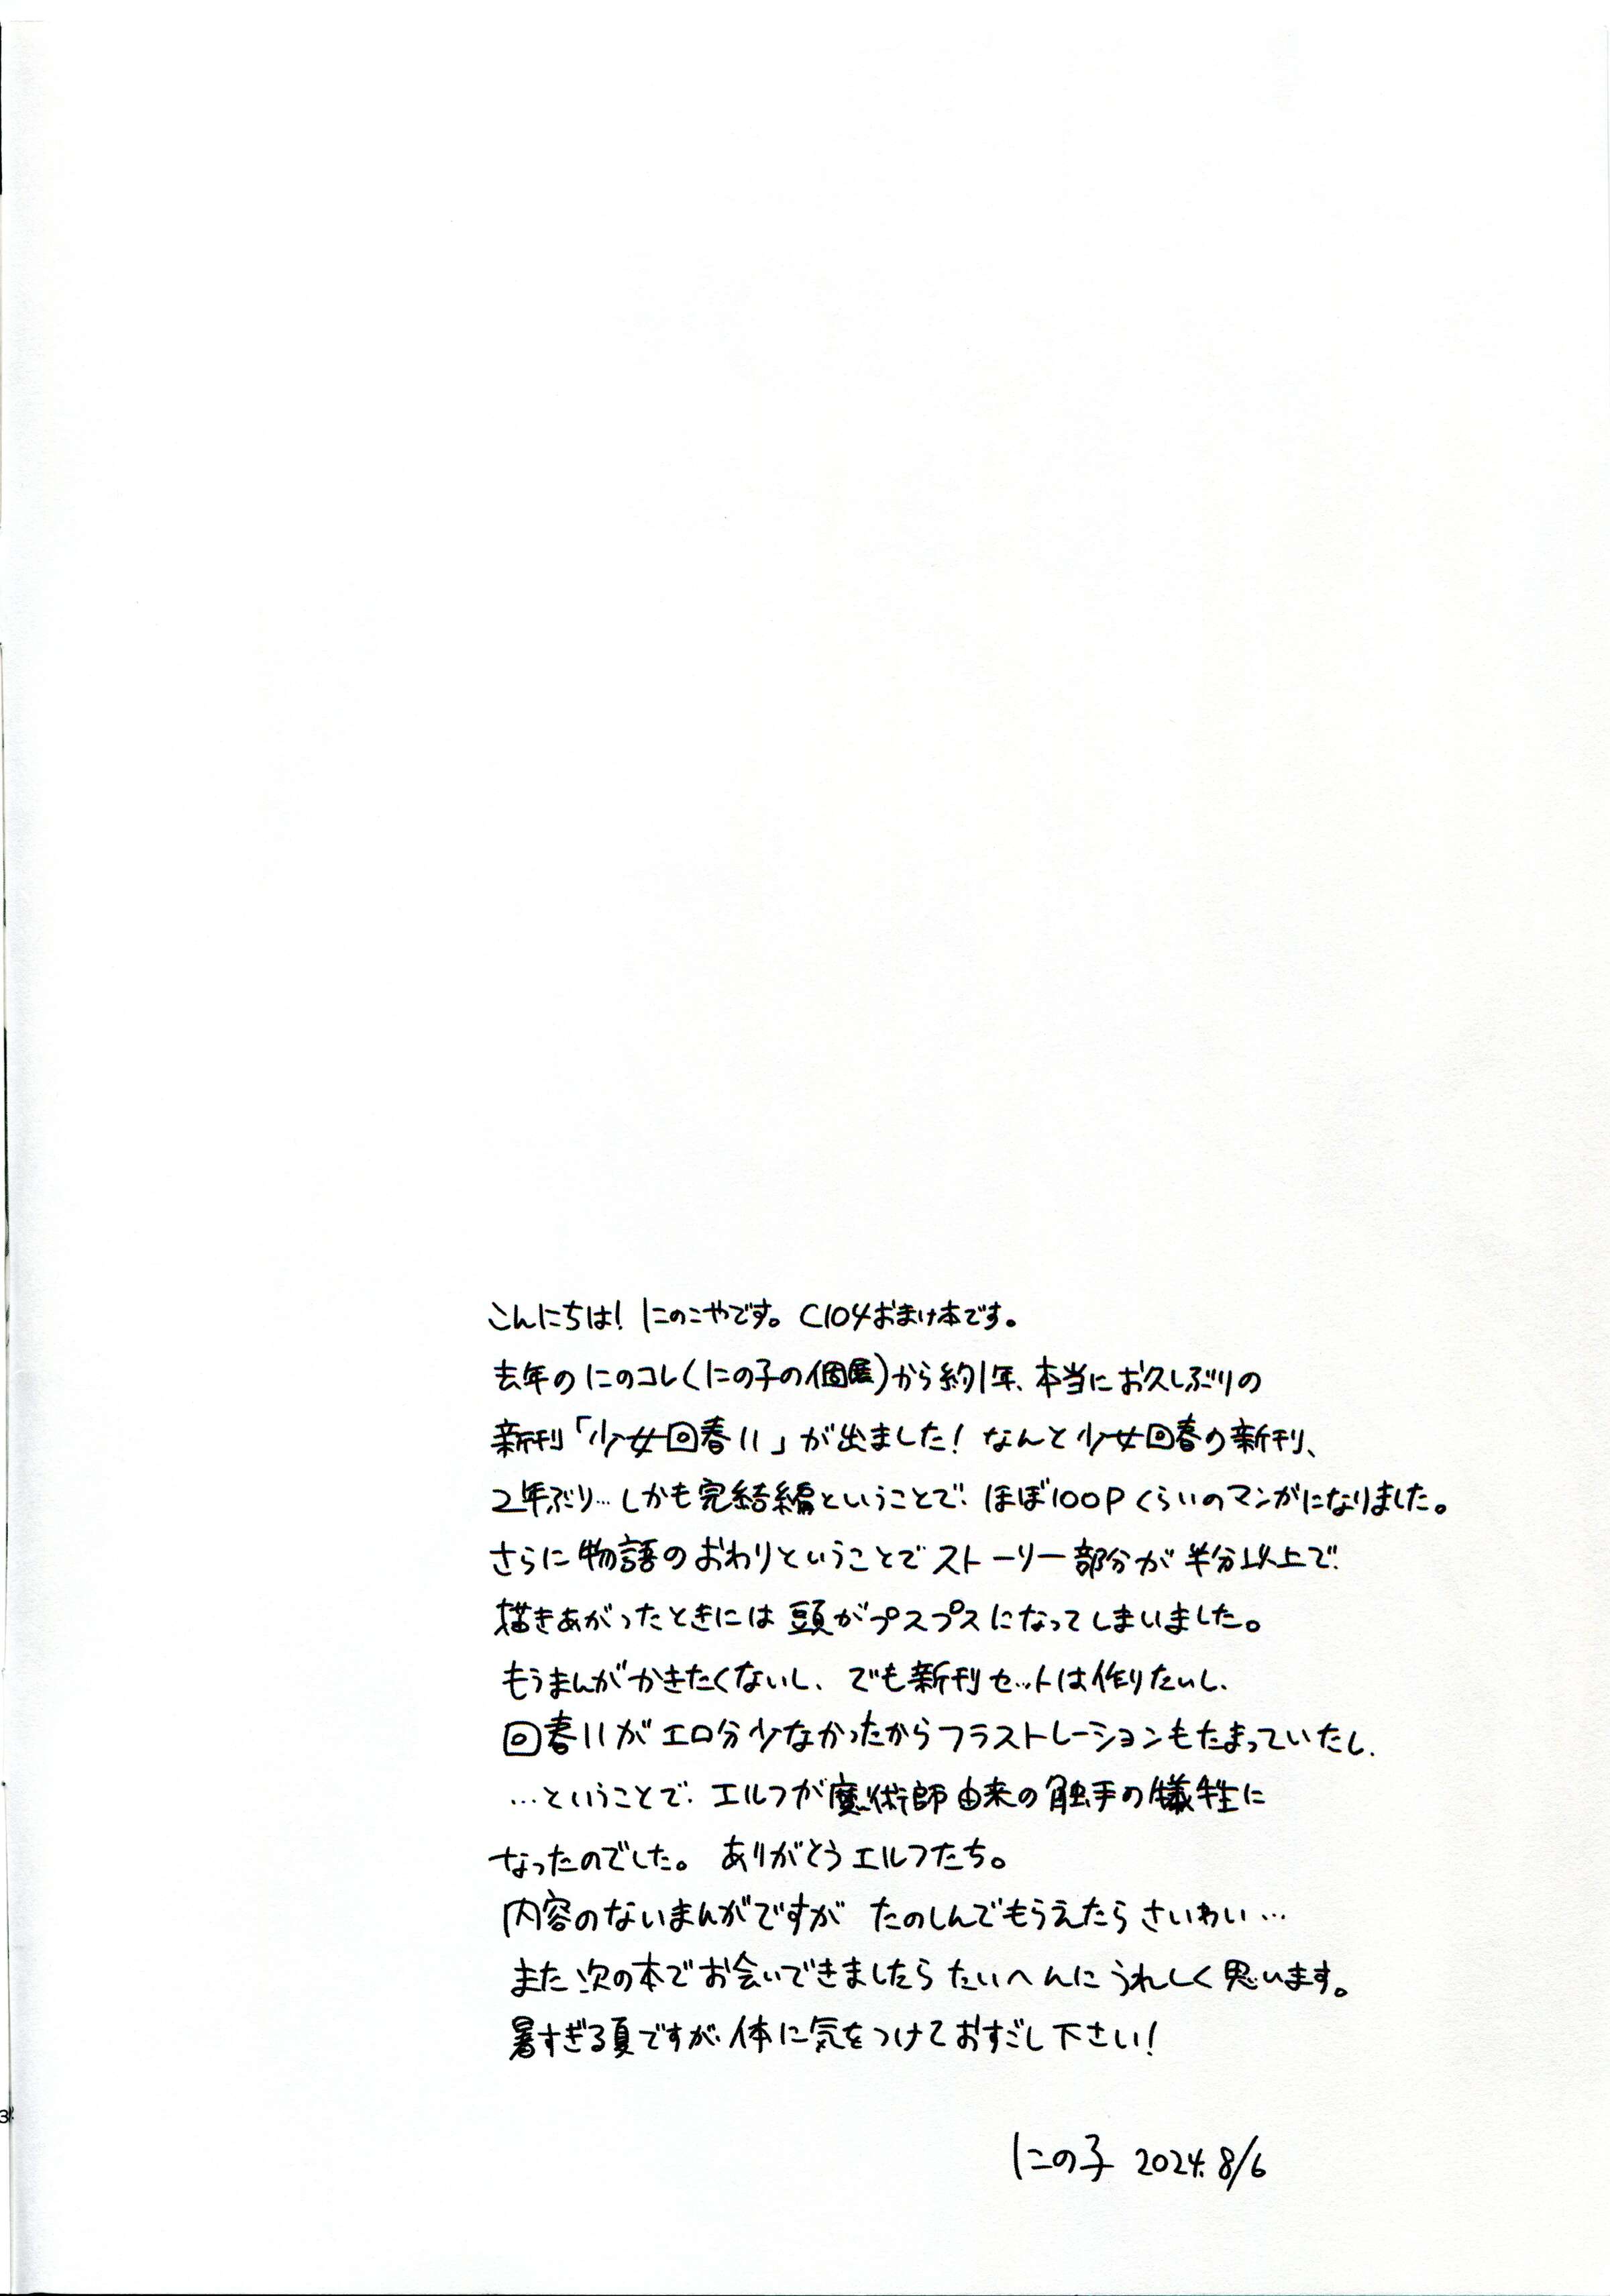 こんにちは! にのこやです。C104おまけ本です。
去年のにのコレ(にの子の個展)から約1年、本当にお久しぶりの
新刊「少女回春11」が出ました! なんと少女回春の新刊、
2年ぶり…しかも完結編ということで、ほぼ100Pくらいのマンガになりました。
さらに物語のおわりということでストーリー部分が半分以上で、
描きあがったときには頭がプスプスになってしまいました。
もうまんがかきたくないし、でも新刊セットは作りたいし、
回春11がエロ分少なかったからフラストレーションもたまっていたし、
…ということで、エルフが魔術師由来の触手の犠牲に
なったのでした。ありがとうエルフたち。
内容のないまんがですが たのしんでもらえたらさいわい…
また次の本でお会いできましたらたいへんにうれしく思います。
暑すぎる夏ですが、体に気をつけておすごし下さい!
3
にの子 2024.8/6